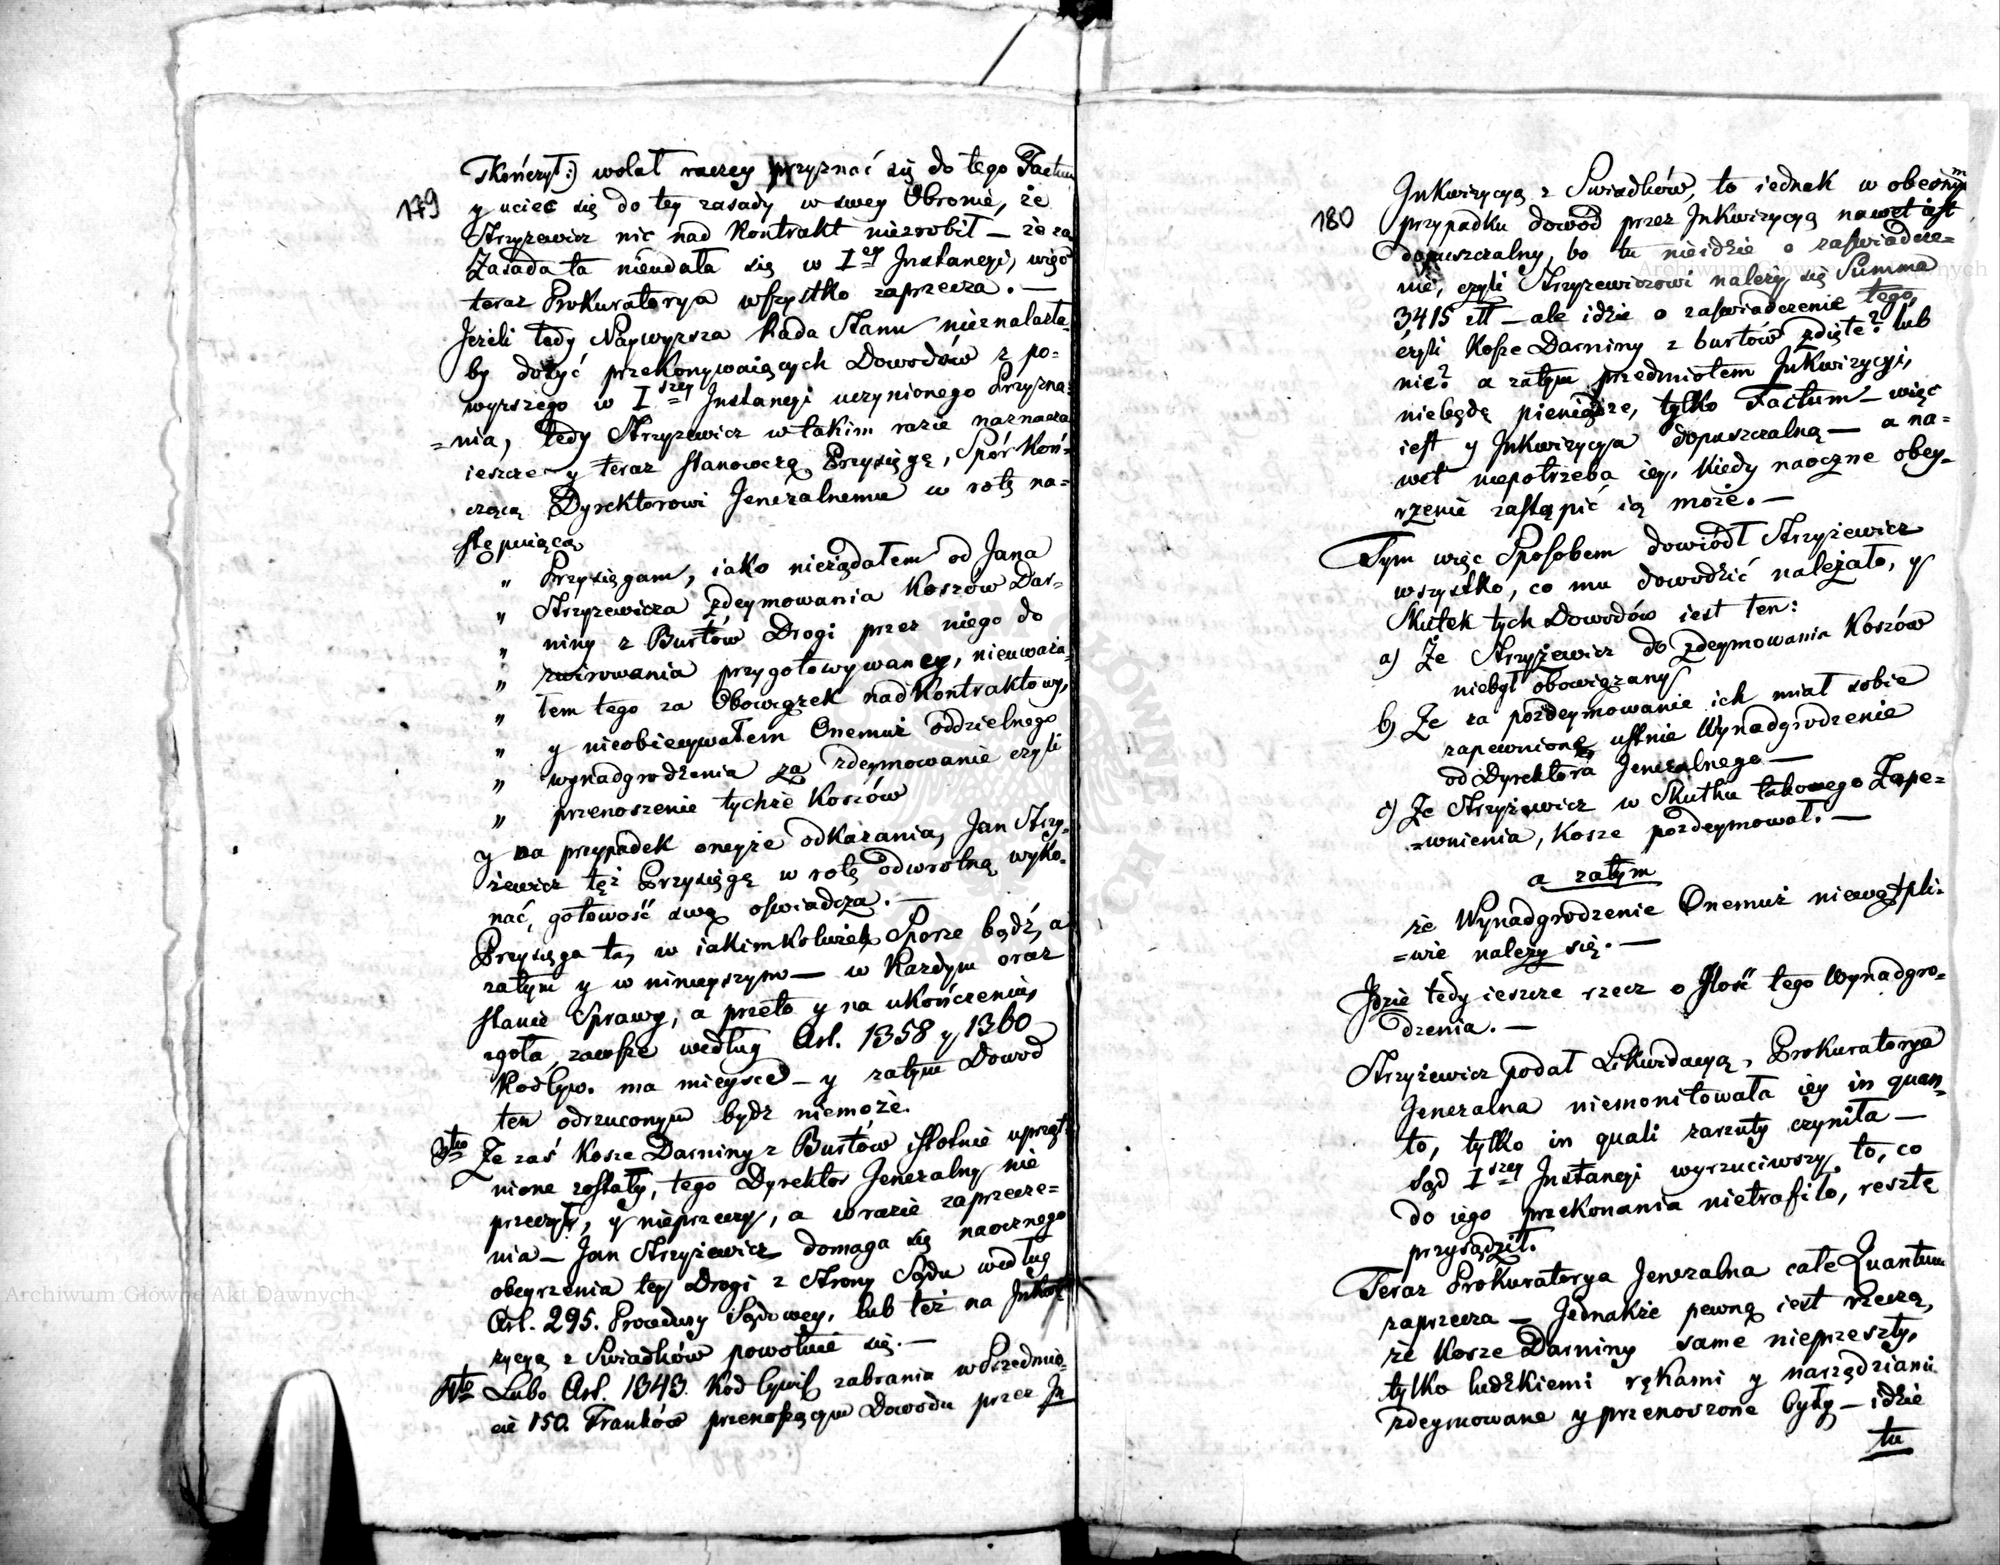 179
skończył:) wolał raczey przyznać się do tego Factum
y uciec się do tey zasady w swey Obronie, że
Strzyżewicz nic nad Kontrakt niezrobił — że zaś
Zasada ta nieudała się w I ey Instancyi, więc
teraz Prokuratorya wszystko zaprzecza. —
Jeżeli tedy Naywyższa Rada Stanu nieznalazła
by dosyć przekonywaiących Dowodów z po=
wyższego w I szey Instancyi uczynionego Przyzna=
=nia, tedy Strzyżewicz w takim razie naznacza
ieszcze y teraz stanowczą Przysięgę, Spór Koń=
czącą Dyrektorowi Jeneralnemu w rotę na=
stępuiącą
„ Przysięgam, iako nieżądałem od Jana
„ Strzyżewicza zdeymowania Koszów Dar=
„ niny z Burtów Drogi przez niego do
„ zwirowania przygotowywaney, nieuważa=
„ łem tego za Obowązek nadKontraktowy,
„ y nieobiecywałem Onemuż oddzielnego
„ wynadgrodzenia za zdeymowanie czyli
„ przenoszenie tychże Koszów
y na przypadek oneyże odkazania, Jan Strzy=
żewicz tęż Przysięgę w rotę odwrotną wyko=
nać, gotowość swą oświadcza. —
Przysięga ta, w iakimkolwiek Sporze bądź, a
zatym y w ninieyszym — w Każdym oraz
stanie Sprawy, a przeto y na ukończeniu,
zgoła zawsze według Art. 1358 y 1360
Kod. Cyw. ma mieysce — y zatym Dowod
ten odrzuconym bydz niemoże.
3tio Ze zaś Kosze Darniny z Burtów istotnie uprząt=
nione zostały, tego Dyrektor Jeneralny nie
przeczył, y nieprzeczy, a w razie zaprzecze=
nia — Jan Strzyżewicz domaga się naocznego
obeyrzenia tey Drogi z Strony Sądu według
Art. 295. Procedury Sądowey, lub też na Inkwi=
zycyą z Swiadków powołuie się. —
4to Lubo Art. 1343. Kod. Cywil. zabrania w Przedmio=
cie 150. Franków przenoszącym Dowodu przez In
180
Inkwizycyą z Swiadków, to iednak w obecnym
przypadku dowód przez Inkwizycyą nawet iest
dopuszczalny, bo tu nieidzie o zaświadcze=
nie, czyli Strzyżewiczowi należy się Summa
3415 złł — ale idzie o zaświadczenie tego,
czyli Kosze Darniny z burtów zdięte? lub
nie? a zatym przedmiotem Inkwizycyi,
niebędą pieniądze, tylko Factum — więc
iest y Inkwizycya dopuszczalną — a na=
wet niepotrzeba iey, kiedy naoczne obey=
rzenie zastąpić ią może. —
Tym więc Sposobem dowiódł Strzyżewicz
wszystko, co mu dowodzić należało, y
Skutek tych Dowodów iest ten:
a) Ze Strzyżewicz do zdeymowania Koszów
niebył obowiązany
b) Ze za pozdeymowanie ich miał sobie
zapewnione ustnie Wynadgrodzenie
od Dyrektora Jeneralnego —
c) Ze Strzyżewicz w Skutku takowego Zape=
=wnienia, Kosze pozdeymował. —
a zatym
że Wynadgrodzenie Onemuż niewątpli=
=wie należy się. —
Jdzie tedy ieszcze rzecz o Jlość tego Wynadgro=
dzenia. —
Strzyżewicz podał Likwidacyą, Prokuratorya
Jeneralna niemonitowała iey in quan=
to, tylko in quali zarzuty czyniła —
Sąd I szey Instancyi wyrzuciwszy to, co
do iego przekonania nietrafiło, resztę
przysądził.
Teraz Prokuratorya Jeneralna całe Quantum
zaprzecza — Jednakże pewną iest rzeczą,
że Kosze Darniny same nieprzeszły,
tylko ludzkiemi rękami y narzędziami
zdeymowane y przenoszone były — idzie
tu
Archiwum Główne Akt Dawnych
Archiwum Główne Akt Dawnych